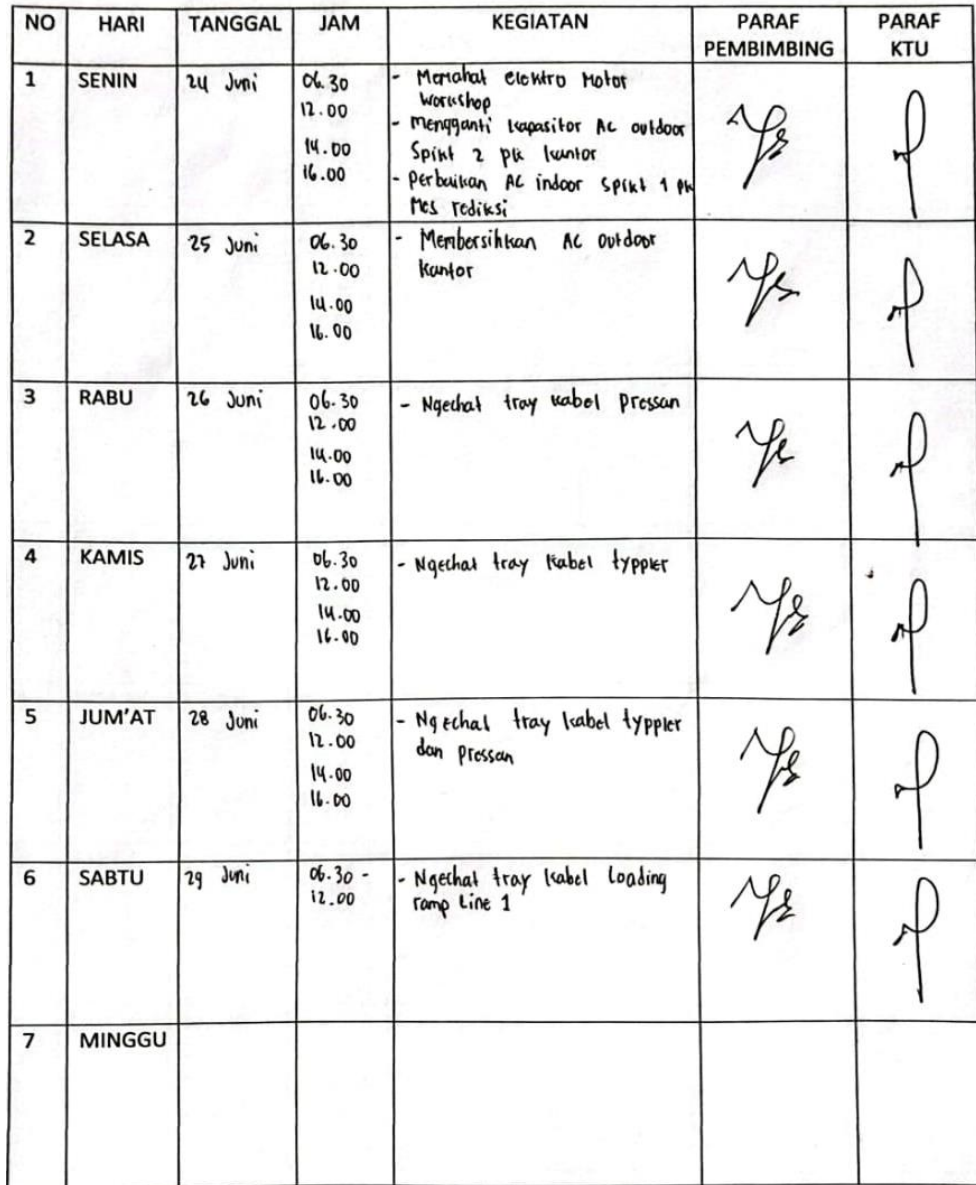 NO HARI TANGGAL JAM KEGIATAN PARAF PEMBIMBING PARAF KTU
1 SENIN 24 Juni
06.30
12.00
14.00
16.00
- Memahat elektro Motor
Workshop
- Mengganti kapasitor AC outdoor
Split 2 pk kantor
- Perbaikan AC indoor Split 1 pk
Mes rediksi
2 SELASA 25 Juni
06.30
12.00
14.00
16.00
- Membersihkan AC outdoor
kantor
3 RABU 26 Juni
06.30
12.00
14.00
16.00
- Ngechat tray kabel Pressan
4 KAMIS 27 Juni
06.30
12.00
14.00
16.00
- Ngechat tray kabel typpler
5 JUM'AT 28 Juni
06.30
12.00
14.00
16.00
- Ngechat tray kabel typpler
dan Pressan
6 SABTU 29 Juni
06.30 -
12.00
- Ngechat tray kabel Loading
ramp Line 1
7 MINGGU